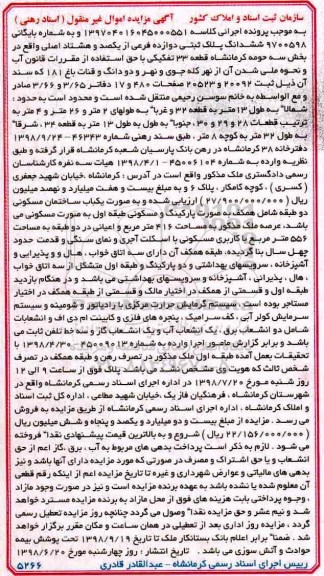 سازمان ثبت اسناد و املاک کشور آگهی مزایده اموال غیر منقول ( اسناد رهنی )
به موجب پرونده اجرائی کلاسه ۱۳۹۷۰۴۰۱۶۰۴۵۰۰۰۵۵۱ و به شماره بایگانی
۹۷۰۰۵۹۸ ششدانگ پلاک ثبتی دوازده فرعی از یکصد و هشتاد اصلی واقع در
بخش سه حومه کرمانشاه قطعه ۳۳ تفکیکی با حق استفاده از مقررات قانون آب
و نحوه ملی شدن آن از نهر کله جوی و نهر و دو دانگ و قنات باغ ۱۸۱ که سند
آن ذیل ثبت ۲۰۰۹۲ و ۲۰۵۲۳ صفحات ۴۸۰ و ۱۷ دفاتر ۳/۶۵ و ۳/۶۶ صادر
و مع الواسطه به خانم سوسن رحیمی منتقل شده است و محدود است به حدود :
شمالا" به طول ۱۳ متر به قطعه ۳۲ و غربا" به طولهای ۲ متر و ۲۶ متر و ۴ متر به
ترتیب قطعات ۲۸ و ۲۹ و ۳۰ ، جنوبا" به طول به طول ۱۳ متر به قطعه ۳۴ ، شرقا"
به طول ۳۲ متر به کوچه ۸ متر ، طبق سند رهنی شماره ۴۶۳۴۳ - ۱۳۹۸/۹/۲۴
دفترخانه ۳۸ کرمانشاه در رهن بانک پارسیان شعبه کرمانشاه قرار گرفته و طبق
نظریه وارده به شماره ۴۵۰۰۶۱۰۴ - ۱۳۹۸/۴/۱ هیات سه نفره کارشناسان
رسمی دادگستری ملک مذکور واقع است در آدرس : کرمانشاه ، خیابان شهید جعفری
( کسری ) ، کوچه کامکار ، پلاک ۶ و به مبلغ بیست و هفت میلیارد و نهصد میلیون
( ۲۷/۹۰۰/۰۰۰/۰۰۰ ریال ) ارزیابی شده و به صورت یکباب ساختمان مسکونی
دو طبقه شامل همکف به صورت پارکینگ و مسکونی طبقه اول به صورت مسکونی می
باشد، عرصه ملک مذکور به مساحت ۴۱۶ متر مربع و اعیانی در دو طبقه به مساحت
۵۵۶ متر مربع با کاربری مسکونی با اسکلت آجری و نمای سنگی و قدمت حدود
چهل سال بنا گردیده، طبقه همکف آن دارای سه اتاق خواب ، هال ، و پذیرایی و
آشپزخانه ، سرویسهای بهداشتی و دو پارکینگ و طبقه اول متشکل از سه اتاق خواب
، هال ، پذیرایی ، آشپزخانه و سرویسهای بهداشتی می باشند و در هنگام بازدید
طبقه اول و قسمتی از همکف در اختیار مالک و قسمتی از طبقه همکف در اختیار
مستاجر بوده است . سیستم گرمایش حرارت مرکزی با رادیاتور و شومینه و سیستم
سرمایش کولر آبی ، کف سرامیک ، پنجره های فلزی و کابینت ام دی اف و انشعابات
شامل دو انشعاب برق ، یک انشعاب آب و یک انشعاب گاز و سه خط تلفن ثابت می
باشد و برابر گزارش مامور اجرا وارده به شماره ۴۵۰۰۹۰۱۳ - ۱۳۹۸/۴/۳۰ با
تحقیقات بعمل آمده طبقه اول ملک مذکور در تصرف رهن و طبقه همکف در تصرف
شخص ثالث که هویت وی مشخص نشد می باشد پلاک فوق از ساعت ۹ الی ۱۲
روز شنبه مورخ ۱۳۹۸/۷/۲۰ در اداره اجرای اسناد رسمی کرمانشاه واقع در
شهرستان کرمانشاه ، فرهنگیان فاز یک ،خیابان شهید مطاعی ، اداره کل ثبت اسناد
و املاک کرمانشاه ، اداره اجرای اسناد رسمی کرمانشاه از طریق مزایده به فروش
می رسد . مزایده از مبلغ بیست و دو میلیارد و یکصد و پنجاه و شش میلیون ریال
( ۲۲/۱۵۶/۰۰۰/۰۰۰ ریال ) شروع و به بالاترین قیمت پیشنهادی نقدا" فروخته
می شود . لازم به ذکر است پرداخت بدهی های مربوط به آب ، برق ، گاز اعم از حق
انشعاب و یا حق اشتراک و مصرف در صورتی که مورد مزایده دارای آنها باشد و نیز
بدهی های مالیاتی و عوارض شهرداری و غیره تا تاریخ مزایده اعم از اینکه رقم قطعی
آن معلوم شده یا نشده باشد به عهده برنده مزایده است و نیز در صورت وجود مازاد
، وجوه پرداختی بابت هزینه های فوق از محل مازاد به برنده مزایده مسترد خواهد
شد و نیم عشر و حق مزایده نقدا" وصول می گردد چنانچه روز مزایده تعطیل رسمی
گردد ، مزایده روز اداری بعد از تعطیلی در همان ساعت و مکان مقرر برگزار خواهد
شد . ضمنا" برابر اعلام بانک بستانکار ملک تا تاریخ ۱۳۹۸/۹/۱۹ تحت پوشش بیمه
حوادث و آتش سوزی می باشد . تاریخ انتشار : روز چهارشنبه مورخ ۱۳۹۸/۶/۲۰
رییس اجرای اسناد رسمی کرمانشاه - عبدالقادر قادری ۵۲۶۶